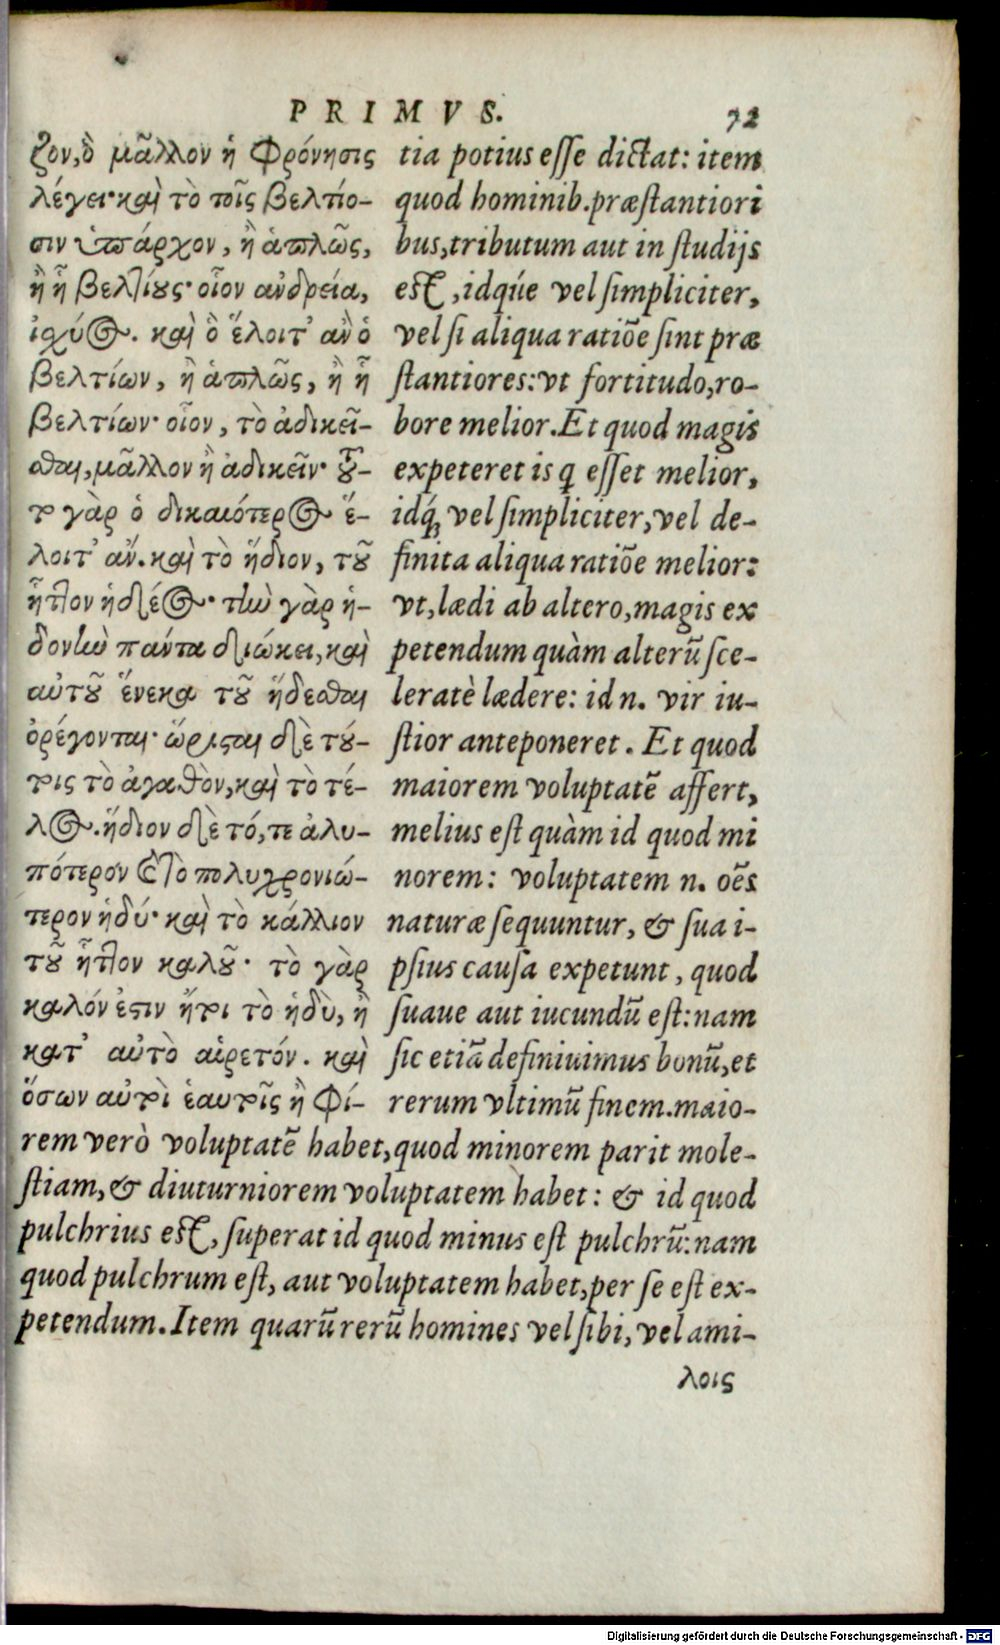 PRIMVS. 72
ζον, ὃ μᾶλλον ἡ φρόνησις
λέγει· καὶ τὸ τοῖς βελτίο-
σιν ὑπάρχον, ἢ ἁπλῶς,
ἢ ᾗ βελτίους· οἷον ἀνδρεία,
ἰσχύος. καὶ ὃ ἕλοιτ’ ἂν ὁ
βελτίων, ἢ ἁπλῶς, ἢ ᾗ
βελτίων· οἷον, τὸ ἀδικεῖ-
σθαι, μᾶλλον ἢ ἀδικεῖν· τοῦ-
το γὰρ ὁ δικαιότερος ἕ-
λοιτ’ ἄν. καὶ τὸ ἥδιον, τοῦ
ἧττον ἡδέος· τὴν γὰρ ἡ-
δονὴν πάντα διώκει, καὶ
αὐτοῦ ἕνεκα τοῦ ἥδεσθαι
ὀρέγονται· ὥρισται δὲ τού-
τοις τὸ ἀγαθὸν, καὶ τὸ τέ-
λος. ἥδιον δὲ τό, τε ἀλυ-
πότερον καὶ τὸ πολυχρονιώ-
τερον ἡδύ· καὶ τὸ κάλλιον
τοῦ ἧττον καλοῦ· τὸ γὰρ
καλόν ἐστιν ἤτοι τὸ ἡδὺ, ἢ
κατ’ αὐτὸ αἱρετόν. καὶ
ὅσων αὐτοὶ ἑαυτοῖς ἢ φί-
tia potius esse dictat: item
quod hominib. præstantiori
bus, tributum aut in studijs
est, idq́ue vel simpliciter,
vel si aliqua ratiõe sint præ
stantiores: vt fortitudo, ro-
bore melior. Et quod magis
expeteret is q esset melior,
idq́ꝫ vel simpliciter, vel de-
finita aliqua ratiõe melior:
vt, lædi ab altero, magis ex
petendum quàm alterũ sce-
leratè lædere: id n. vir iu-
stior anteponeret. Et quod
maiorem voluptatẽ affert,
melius est quàm id quod mi
norem: voluptatem n. oẽs
naturæ sequuntur, & sua i-
psius causa expetunt, quod
suaue aut iucundũ est: nam
sic etiã definiuimus bonũ, et
rerum vltimũ finem. maio-
rem verò voluptatẽ habet, quod minorem parit mole-
stiam, & diuturniorem voluptatem habet: & id quod
pulchrius est, superat id quod minus est pulchrũ: nam
quod pulchrum est, aut voluptatem habet, per se est ex-
petendum. Item quarũ rerũ homines vel sibi, vel ami-
λοις
Digitalisierung gefördert durch die Deutsche Forschungsgemeinschaft - DFG